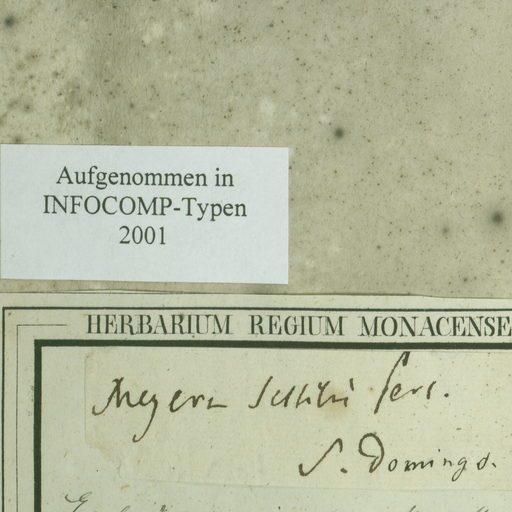 Aufgenommen in
INFOCOMP-Typen
2001
HERBARIUM REGIUM MONACENSE
Meyera sessilis
S. Domingo.